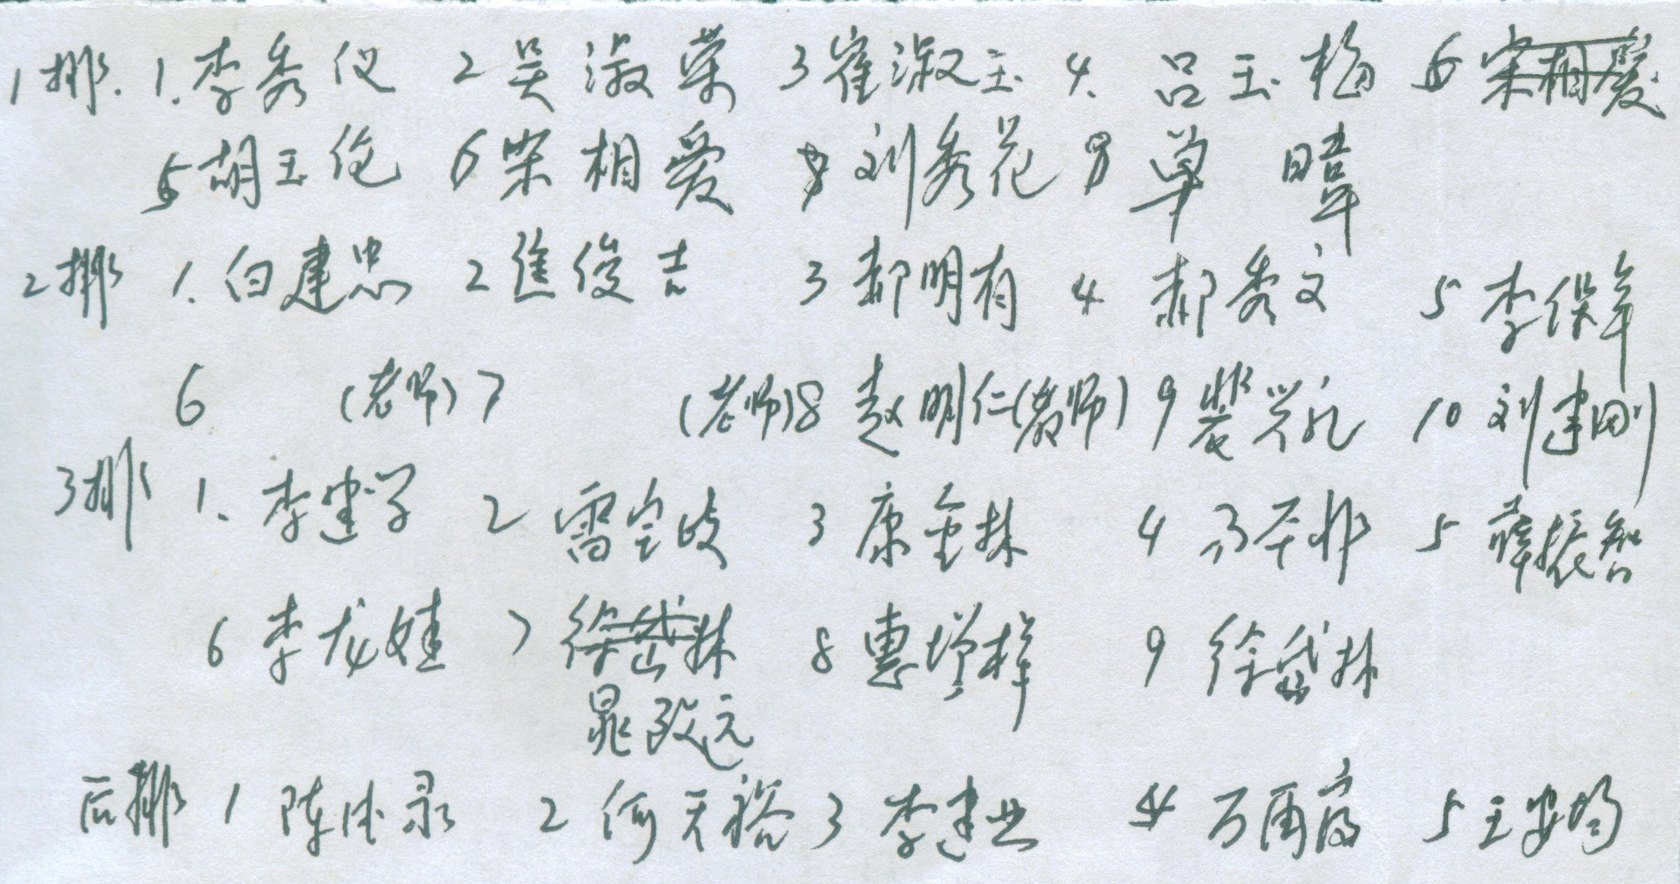 1排. 1.李秀仪 2吴淑荣 3崔淑玉 4.吕玉梅 6宋相爱
5胡玉 6宋相爱 刘秀花 8单
2排 1.白建忠 2焦俊吉 3郝明有 4郝秀文 5李保年
6 (老师) 7 (老师) 8赵明仁(教师) 9裴兴礼 10刘建刚
3排 1.李建学 2雷宝岐 3康金林 4 5薛振智
6李龙娃 7徐岱林 8惠增样 9徐岱林
晁改元
后排 1陈德录 2何天裕 3李建业 4 5王安均